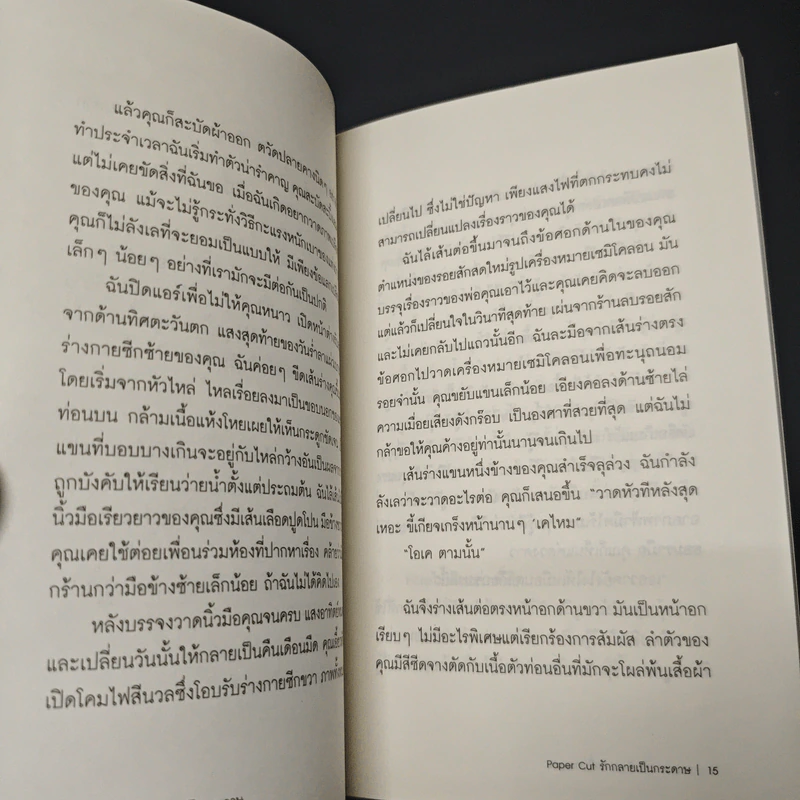 แล้วคุณก็สะบัดผ้าออก ตวัดปลายคางนิดๆ
ทำประจำเวลาฉันเริ่มทำตัวน่ารำคาญ คุณสะบัด
แต่ไม่เคยขัดสิ่งที่ฉันขอ เมื่อฉันเกิดอยากวาดภาพ
ของคุณ แม้จะไม่รู้กระทั่งวิธีกะแรงหนักเบาของ
คุณก็ไม่ลังเลที่จะยอมเป็นแบบให้ มีเพียงข้อแลก
เล็กๆ น้อยๆ อย่างที่เรามักจะมีต่อกันเป็นปกติ
ฉันปิดแอร์เพื่อไม่ให้คุณหนาว เปิดหน้าต่าง
จากด้านทิศตะวันตก แสงสุดท้ายของวันร่ำลา
ร่างกายซีกซ้ายของคุณ ฉันค่อยๆ ขีดเส้นร่าง
โดยเริ่มจากหัวไหล่ ไหลเรื่อยลงมาเป็นขอบนอกของ
ท่อนบน กล้ามเนื้อแห้งโหยเผยให้เห็นกระดูกชัดเจน
แขนที่บอบบางเกินจะอยู่กับไหล่กว้างอันเป็นผล
ถูกบังคับให้เรียนว่ายน้ำตั้งแต่ประถมต้น ฉันไล้
นิ้วมือเรียวยาวของคุณซึ่งมีเส้นเลือดปูดโปน มือข้าง
คุณเคยใช้ต่อยเพื่อนร่วมห้องที่ปากหาเรื่อง
กร้านกว่ามือข้างซ้ายเล็กน้อย ถ้าฉันไม่ได้คิดไปเอง
หลังบรรจงวาดนิ้วมือคุณจนครบ แสงอาทิตย์
และเปลี่ยนวันนั้นให้กลายเป็นคืนเดือนมืด คุณ
เปิดโคมไฟสีนวลซึ่งโอบรับร่างกายซีกขวา
เปลี่ยนไป ซึ่งไม่ใช่ปัญหา เพียงแสงไฟที่ตกกระทบคงไม่
สามารถเปลี่ยนแปลงเรื่องราวของคุณได้
ฉันไล้เส้นต่อขึ้นมาจนถึงข้อศอกด้านในของคุณ
ตำแหน่งของรอยสักสดใหม่รูปเครื่องหมายเซมิโคลอน มัน
บรรจุเรื่องราวของพ่อคุณเอาไว้และคุณเคยคิดจะลบออก
แต่แล้วก็เปลี่ยนใจในวินาทีสุดท้าย เผ่นจากร้านลบรอยสัก
และไม่เคยกลับไปแถวนั้นอีก ฉันละมือจากเส้นร่างตรง
ข้อศอกไปวาดเครื่องหมายเซมิโคลอนเพื่อทะนุถนอม
รอยจำนั้น คุณขยับแขนเล็กน้อย เอียงคอลงด้านซ้ายไล่
ความเมื่อยเสียงดังกร๊อบ เป็นองศาที่สวยที่สุด แต่ฉันไม่
กล้าขอให้คุณค้างอยู่ท่านั้นนานจนเกินไป
เส้นร่างแขนหนึ่งข้างของคุณสำเร็จลุล่วง ฉันกำลัง
ลังเลว่าจะวาดอะไรต่อ คุณก็เสนอขึ้น “วาดหัวทีหลังสุด
เหอะ ขี้เกียจเกร็งหน้านานๆ ‘เคไหม”
“โอเค ตามนั้น”
ฉันจึงร่างเส้นต่อตรงหน้าอกด้านขวา มันเป็นหน้าอก
เรียบๆ ไม่มีอะไรพิเศษแต่เรียกร้องการสัมผัส ลำตัวของ
คุณมีสีซีดจางตัดกับเนื้อตัวท่อนอื่นที่มักจะโผล่พ้นเสื้อผ้า
Paper Cut รักกลายเป็นกระดาษ | 15